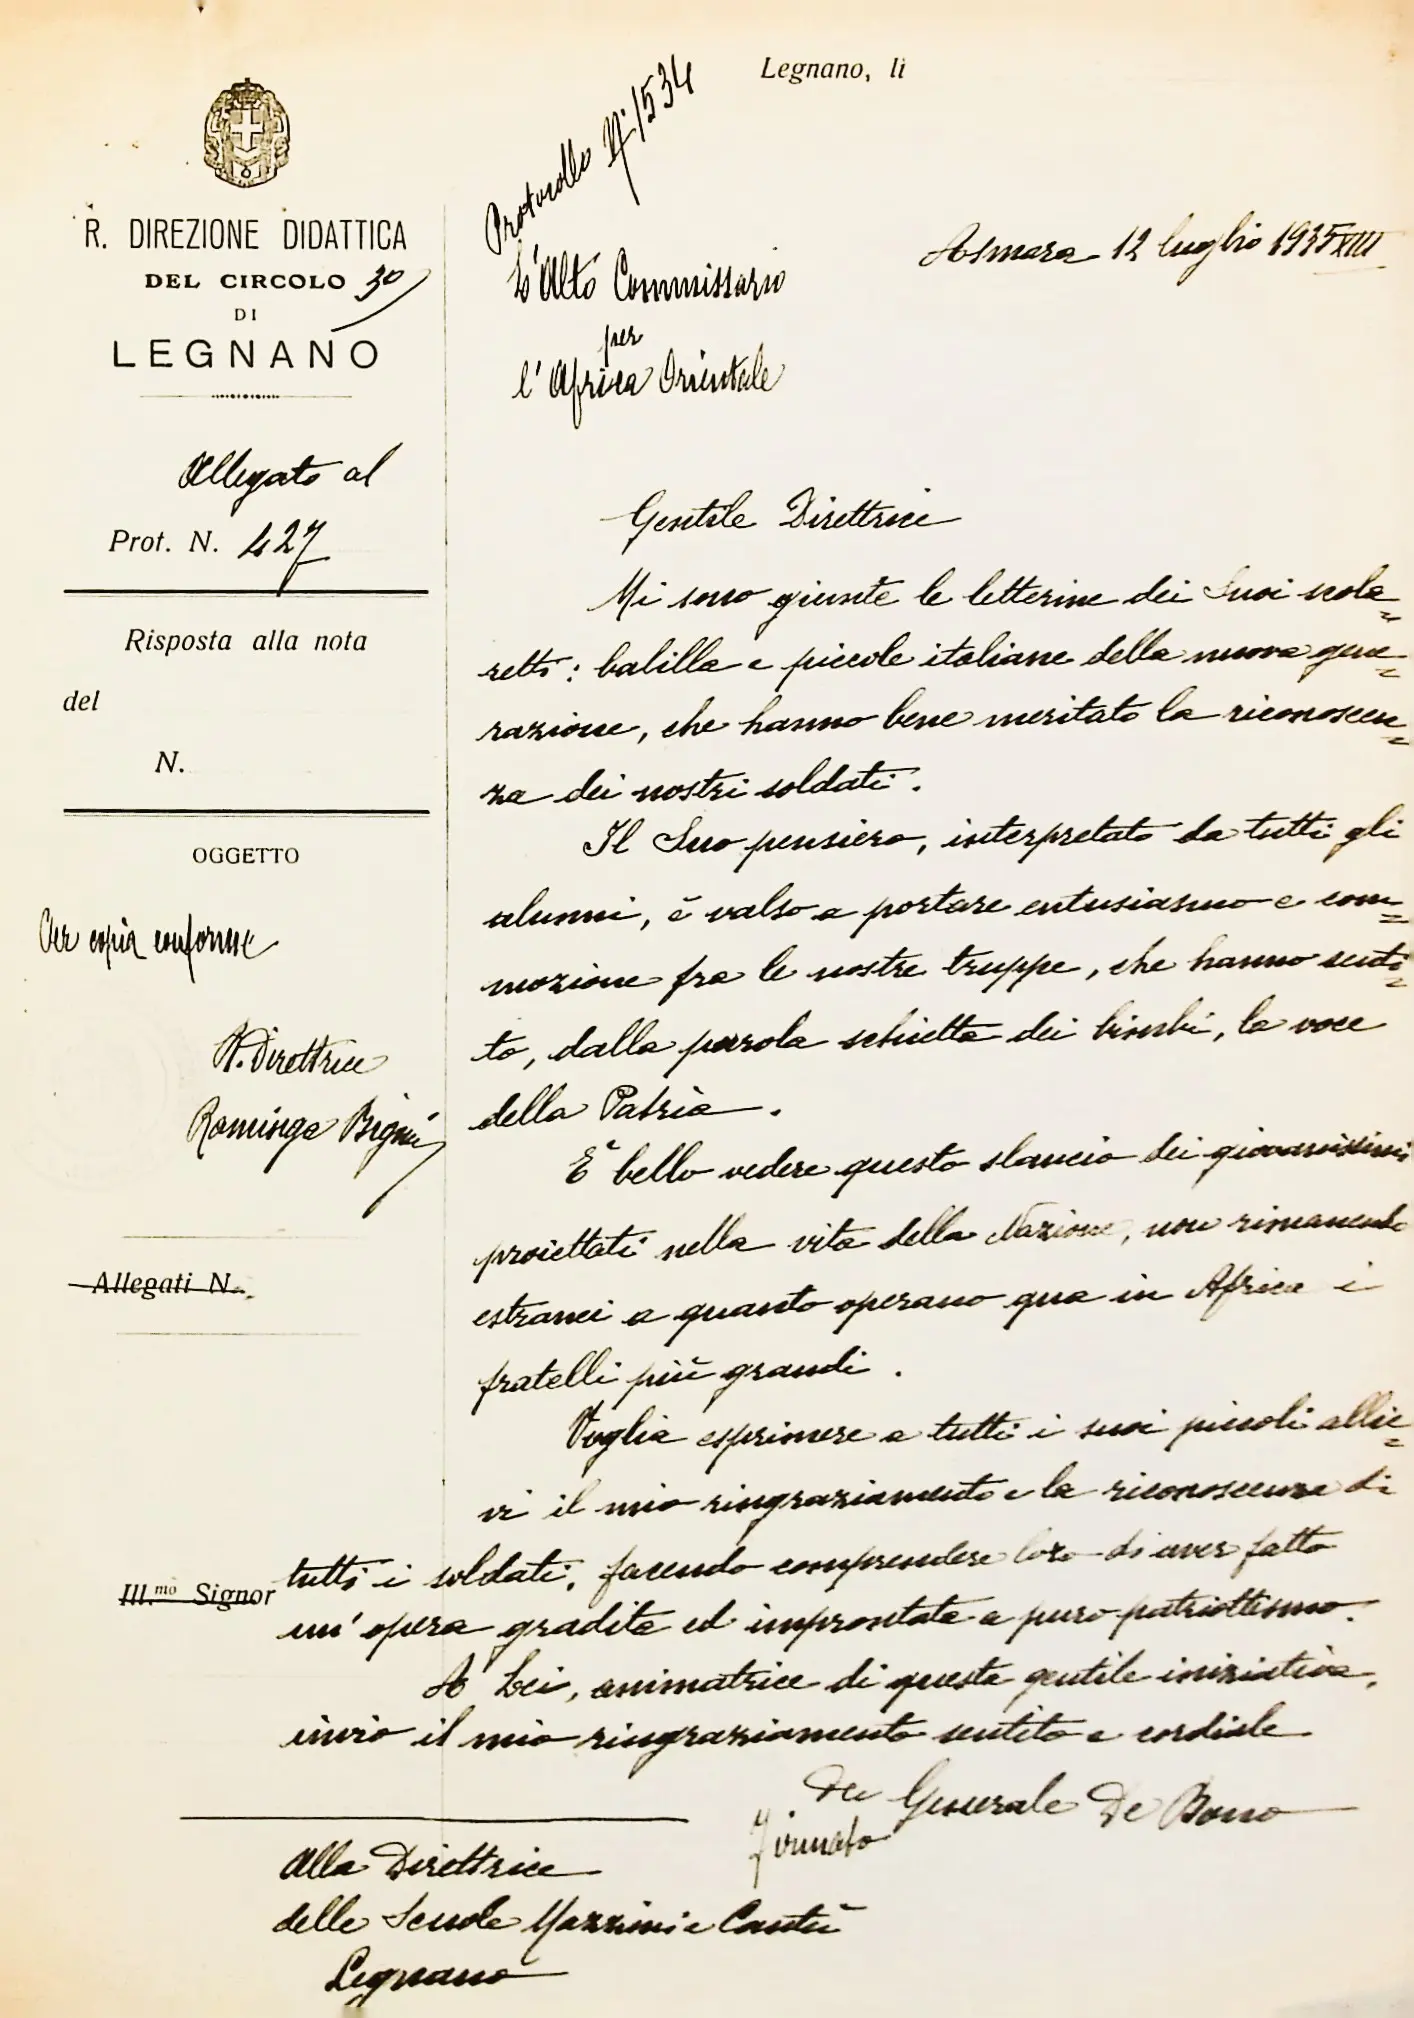 Legnano, lì
R. DIREZIONE DIDATTICA
DEL CIRCOLO 3º
DI
LEGNANO
Allegato al
Prot. N. 427
Risposta alla nota
del
N.
OGGETTO
Per copia conforme
R. Direttrice
Raminga
Allegati N.
Ill.mo Signor
Protocollo N. 1534
L'Alto Commissario
per
l'Africa Orientale
Asmara 12 luglio 1935 XIII
Gentile Direttrice
Mi sono giunte le letterine dei Suoi scola=
retti: balilla e piccole italiane della nuova gene=
razione, che hanno bene meritato la riconoscen=
za dei nostri soldati.
Il Suo pensiero, interpretato da tutti gli
alunni, è valso a portare entusiasmo e com=
mozione fra le nostre truppe, che hanno senti=
to, dalla parola schietta dei bimbi, la voce
della Patria.
E' bello vedere questo slancio dei giovanissimi
proiettati nella vita della Nazione, non rimanendo
estranei a quanto operano qua in Africa i
fratelli più grandi.
Voglia esprimere a tutti i suoi piccoli allie=
vi il mio ringraziamento e la riconoscenza di
tutti i soldati, facendo comprendere loro di aver fatto
un'opera gradita ed improntata a puro patriottismo.
A Lei, animatrice di questa gentile iniziativa,
invio il mio ringraziamento sentito e cordiale
Generale De Bono
Firmato
Alla Direttrice
delle Scuole Mazzini e Cantù
Legnano